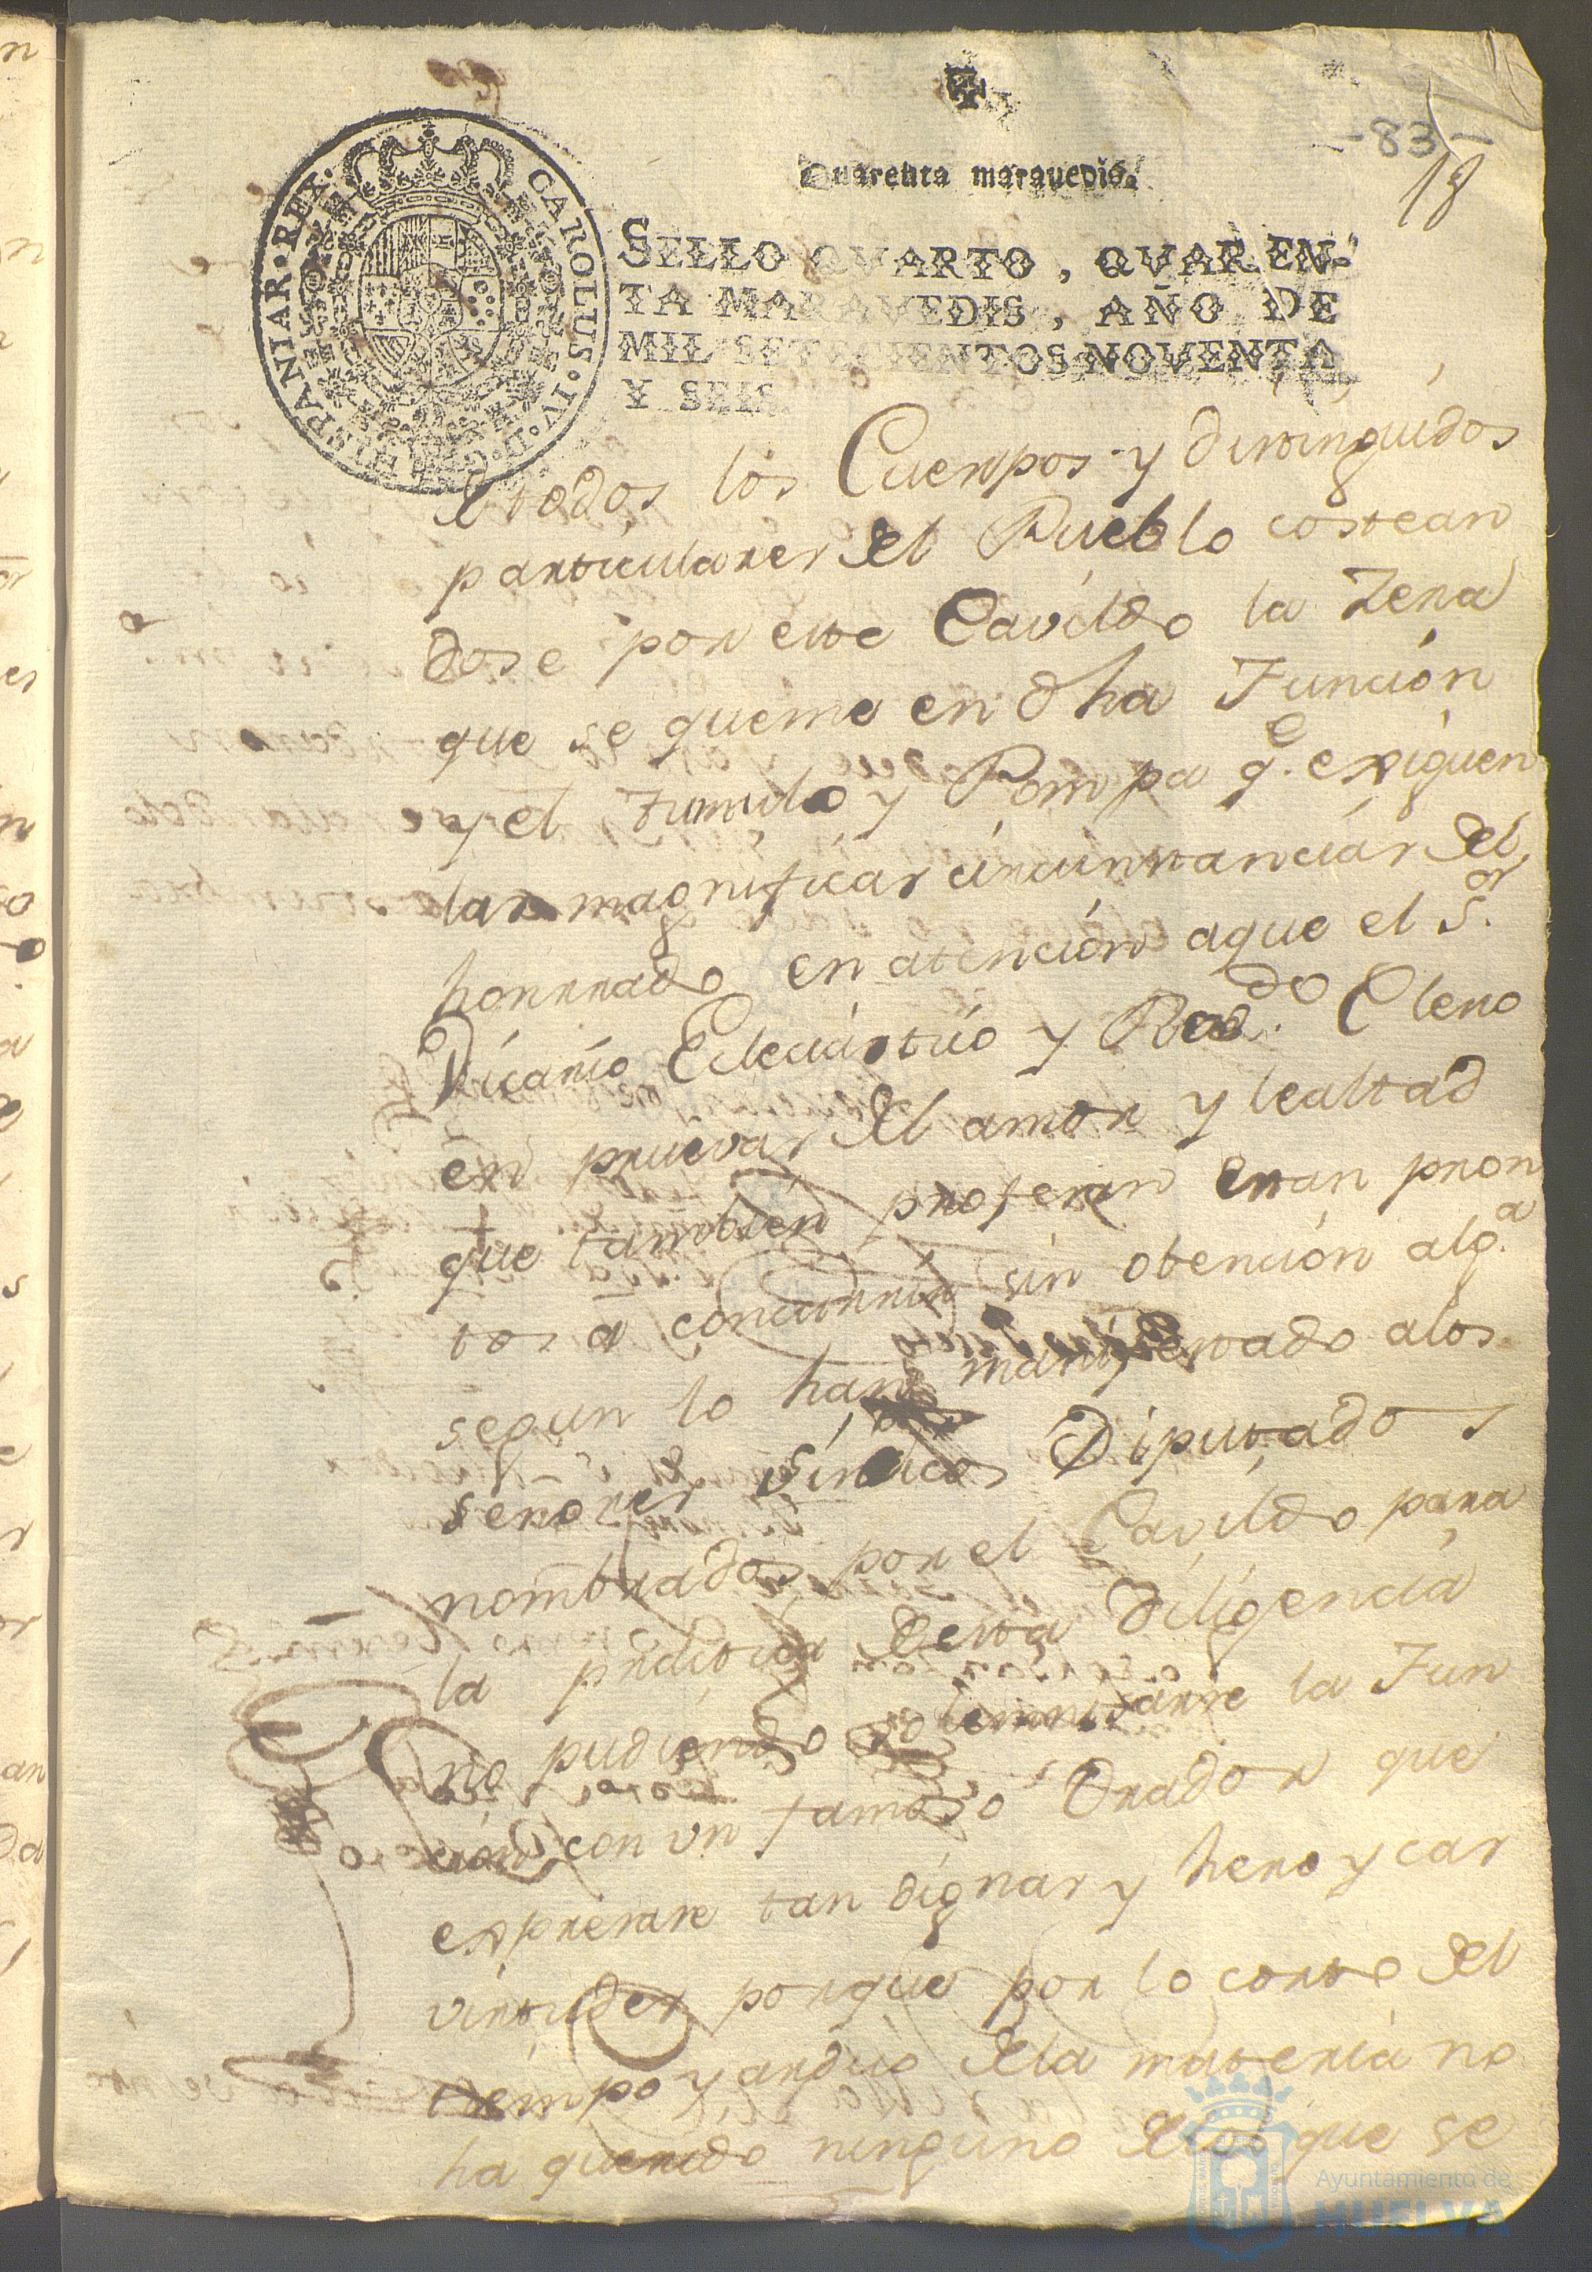 -83-
18
Quarenta maravedis.
SELLO QVARTO, QVAREN-
TA MARAVEDIS, AÑO DE
MIL SETECIENTOS NOVENTA
Y SEIS.
CAROLUS·IV·D·G·HISPANIAR·REX·
d todos los Cuerpos y distinguidos
particulares del Pueblo costean
dose por este Cavildo la Zera
que se queme en dha Funcion
y el tumulo y Pompa q.e exiguen
las magnificas circunstancias del
honrrado en atencion aque el S.or
Vicario Eclesiastico y Red.do Clero
en pruevas del amor y lealtad
que tambien profesan estan pron
tos a concurrir sin obencion alg.a
segun lo han manifestado alos
señores Sindicos Diputados
nombrados por el Cavildo para
la practica desta diligencia
no pudiendo solemnisarse la Fun
cion con un famoso Orador que
expresase tan dignas y heroycas
virtudes porque por lo corto del
tiempo y arduo dela materia no
ha querido ninguno delos que se
Ayuntamiento de
HUELVA